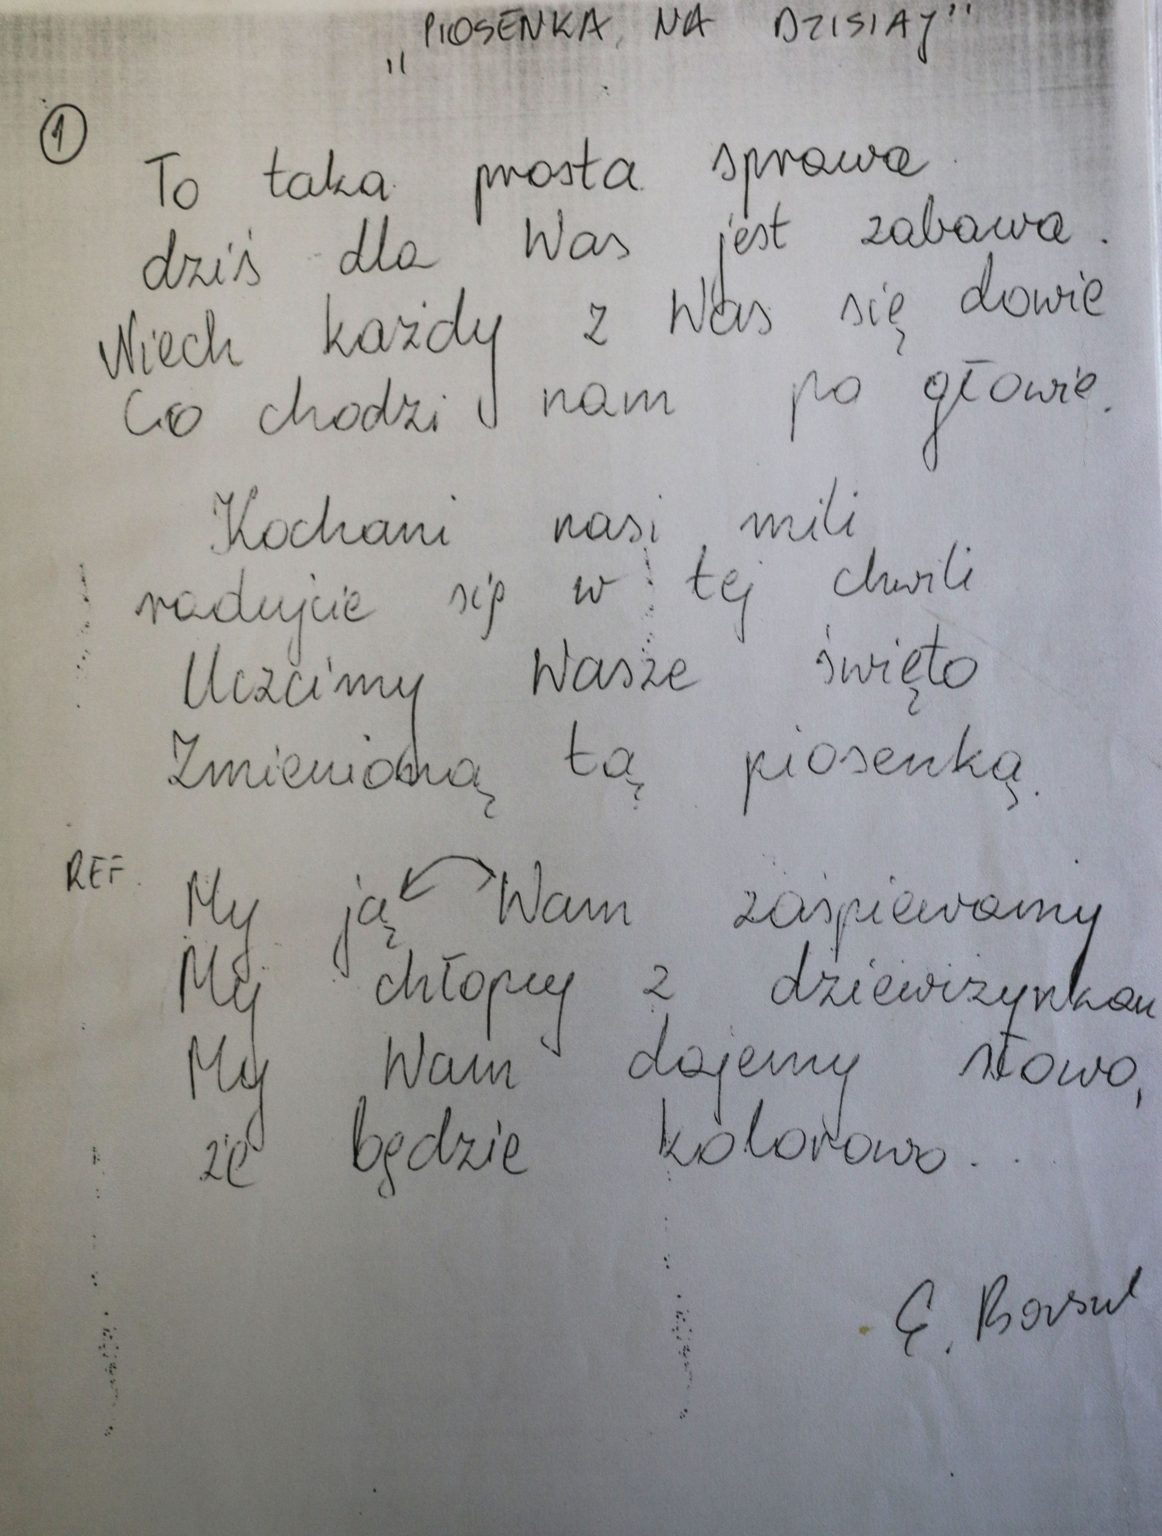 „PIOSENKA NA DZISIAJ"
1
To taka prosta sprawa
dziś dla Was jest zabawa.
Niech każdy z Was się dowie
Co chodzi nam po głowie.
Kochani nasi mili
radujcie się w tej chwili
Uczcimy Wasze święto
Zmienioną tą piosenką.
REF.
My ją Wam zaśpiewamy
My chłopcy z dziewczynkam
My Wam dajemy słowo,
że będzie kolorowo...